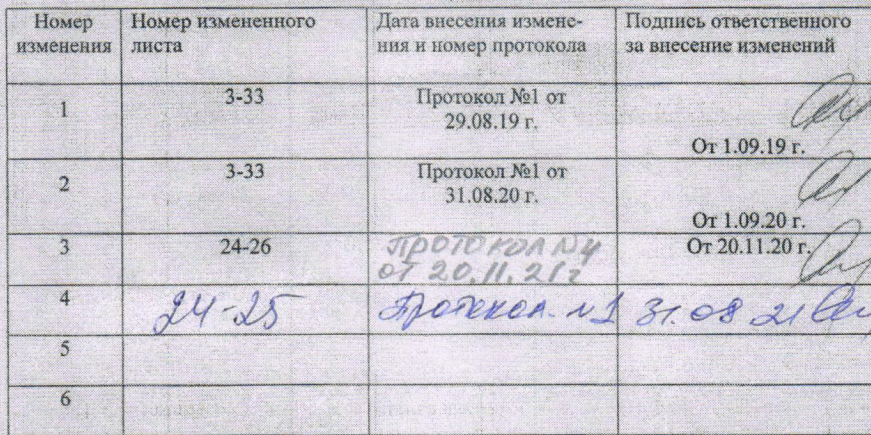 Номер изменения
Номер измененного листа
Дата внесения измене-
ния и номер протокола
Подпись ответственного
за внесение изменений
1
3-33
Протокол №1 от
29.08.19 г.
От 1.09.19 г.
2
3-33
Протокол №1 от
31.08.20 г.
От 1.09.20 г.
3
24-26
Протокол №4
от 20.11.21г
От 20.11.20 г.
4
24-25
Протокол №1
31.08 21
5
6